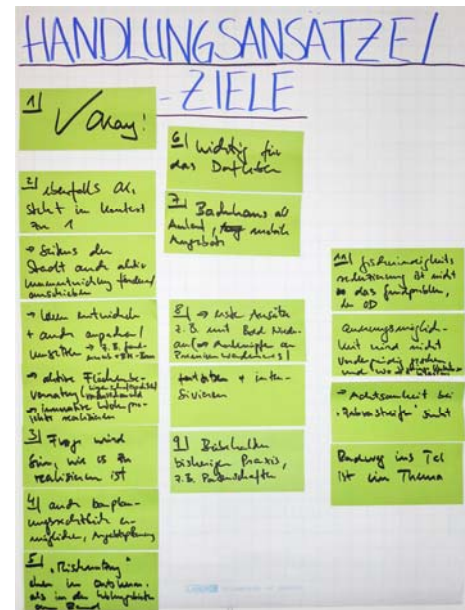 HANDLUNGSANSÄTZE/
-ZIELE
1/
√ Okay!
2/ ebenfalls ok,
steht im Kontext
zu 1
→ Seitens der
Stadt auch aktiv
Innenentwicklung fördern/
anschieben
→ Ideen entwickeln
+ auch angehen/
umsetzen → z.B.
→ aktive Flächenbe-
vorratung/
→ innovative Wohnpro-
jekte realisieren
3/ Frage wird
sein, wie es zu
realisieren ist
4/ auch bauplan-
ungsrechtlich er-
möglichen, Angebotsplanung
5/ "Mischnutzung"
eher im Ortskern,
als in den Wohngebieten
am Rand
6/ wichtig für
das Dorfleben
7/ Backhaus als
Anlauf, mobile
Angebote
8/ → erste Ansätze
z.B. mit Bad
an
Premiumwanderweg/
fortsetzen + inten-
sivieren
9/ Beibehalten
bisherigen Praxis,
z.B. Patenschaften
11/ Geschwindigkeits
reduzierung ist nicht
das Grundproblem,
in OD
Querungsmöglich-
keit wird nicht
vordergründig gesehen
und
→ Achtsamkeit bei
"Zebrastreifen" sinkt
Radweg ins Tal
ist ein Thema